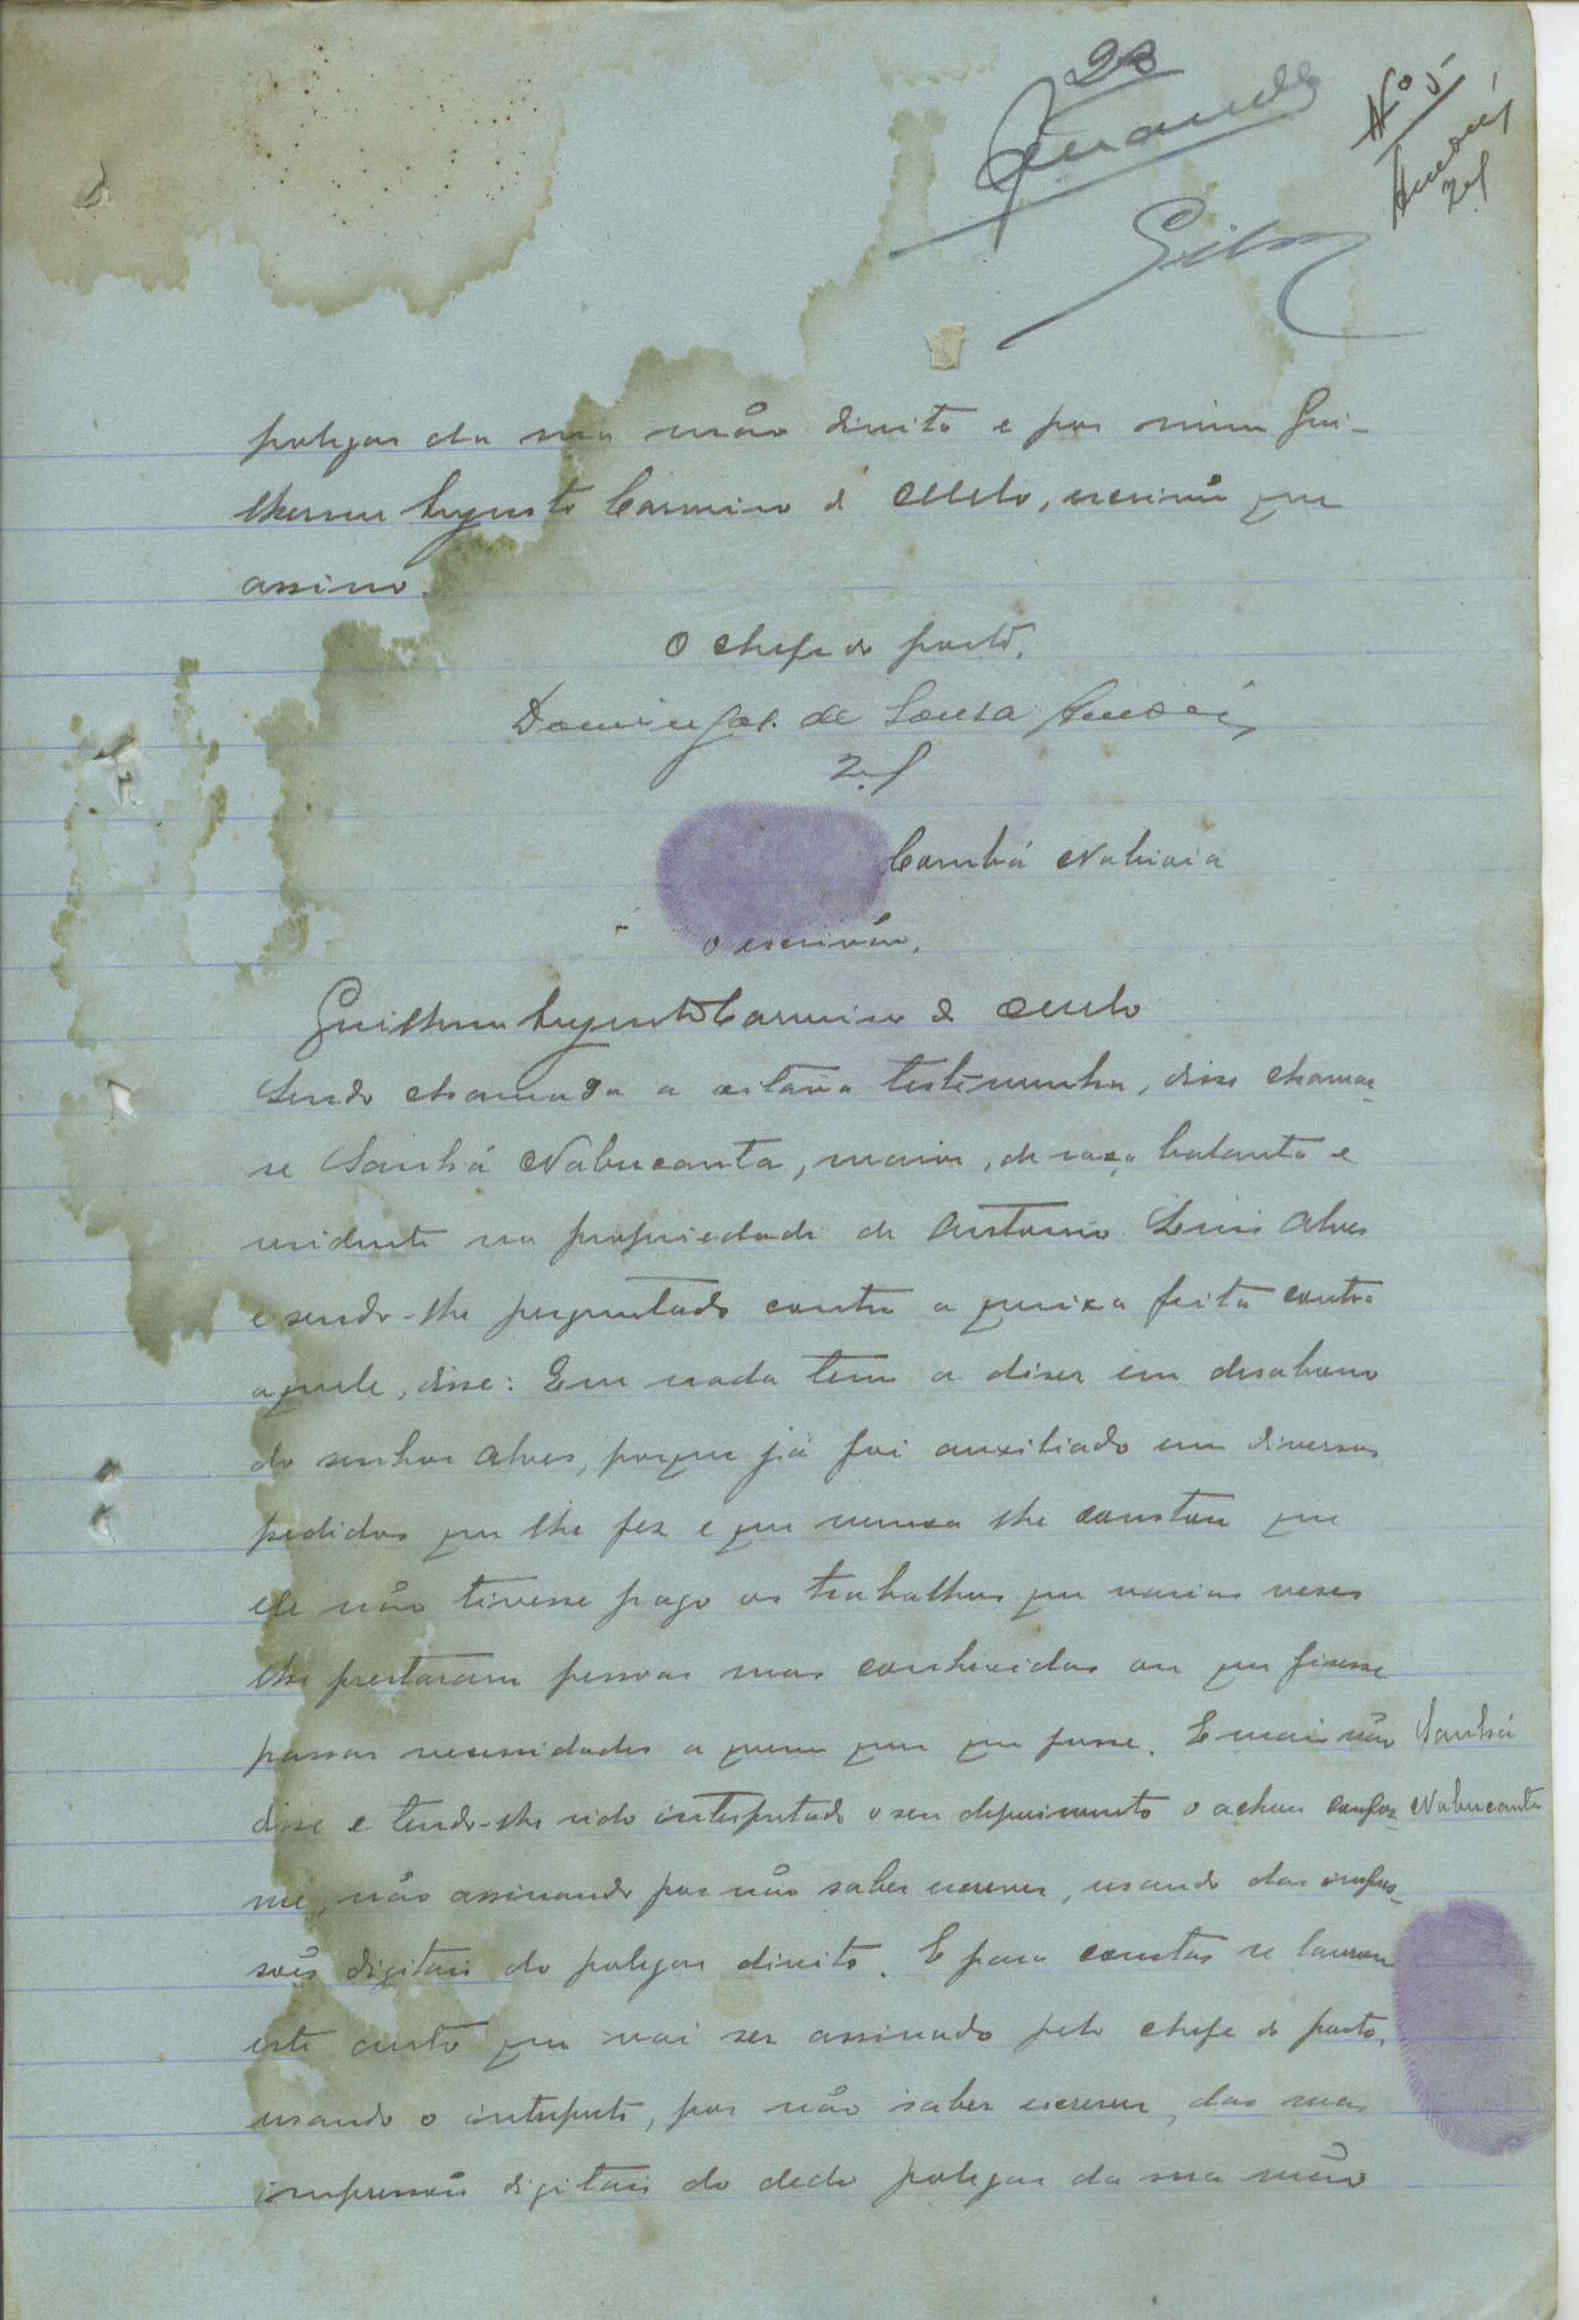 23
Silva
Nº 5
polegar da sua mão direita e por mim Gui-
lherme Augusto Carmino de Melo, escrivão que
assino.
O chefe do posto,
Domingos de Sousa
Cambá Nabiaia
O escrivão,
Guilherme Augusto Carmino de Melo
Sendo chamada a oitava testemunha, disse chamar-
se Sanhá Nabucanta, maior, de raça balanta e
residente na propriedade de Antonio Luis Alves
e sendo-lhe perguntado contra a queixa feita contra
aquele, disse: Que nada tem a diser em desabono
do senhor Alves, porque já foi auxiliado em diversos
pedidos que lhe fez e que nunca lhe constou que
ele não tivesse pago os trabalhos que varias veses
lhe prestaram pessoas suas conhecidas ou que fisesse
passar necessidades a quem quer que fosse. E mais não
disse e tendo-lhe sido interpretado o seu depoimento o achou confor-
me, não assinando por não saber escrever, usando das impres-
sões digitais do polegar direito. E para constar se lavrou
este auto que vai ser assinado pelo chefe do posto,
usando o interprete, por não saber escrever, das suas
impressões digitais do dedo polegar da sua mão
Sanhá
Nabucanta